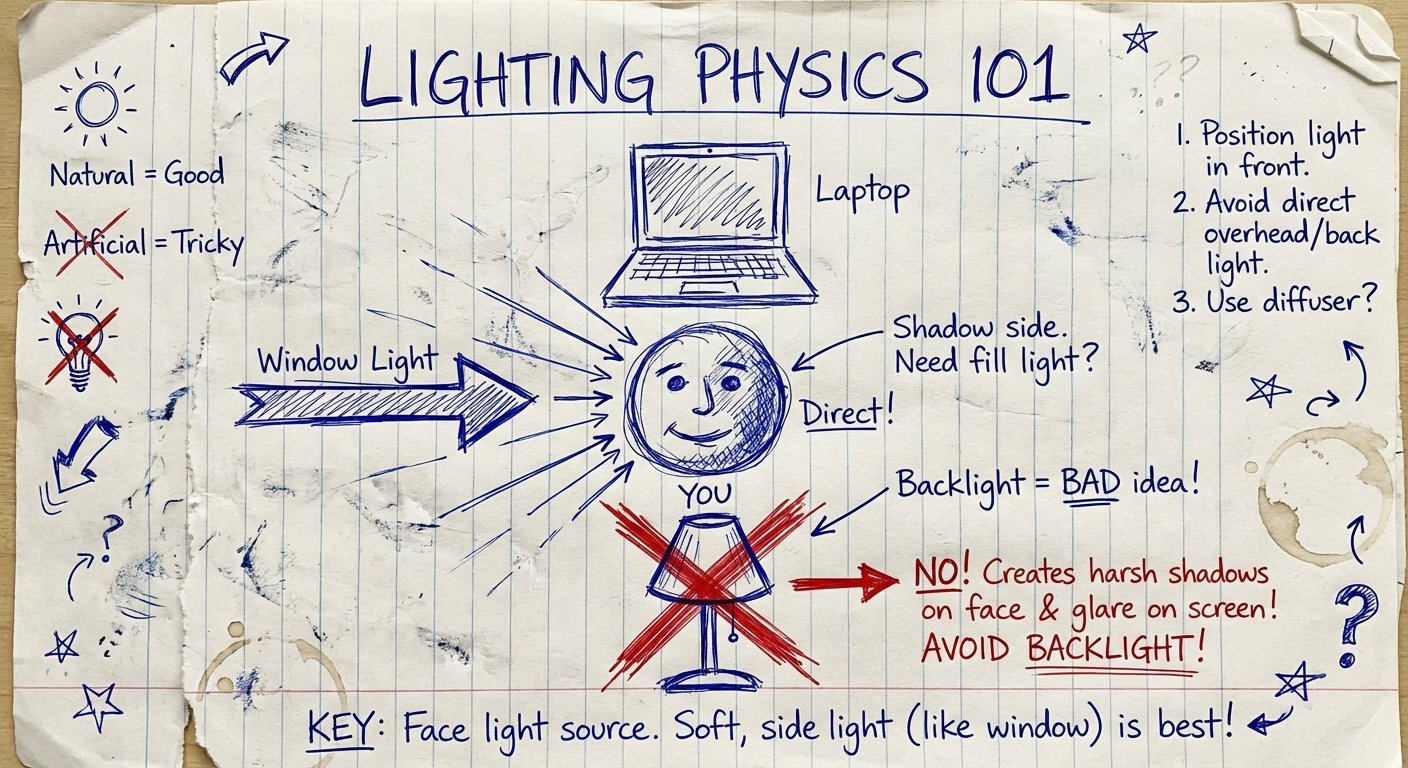 LIGHTING PHYSICS 101
Natural = Good
Artificial = Tricky
Laptop
1. Position light
in front.
2. Avoid direct
overhead/back
light.
3. Use diffuser?
Window Light
Shadow side.
Need fill light?
Direct!
YOU
Backlight = BAD idea!
NO! Creates harsh shadows
on face & glare on screen!
AVOID BACKLIGHT!
?
?
??
KEY: Face light source. Soft, side light (like window) is best!